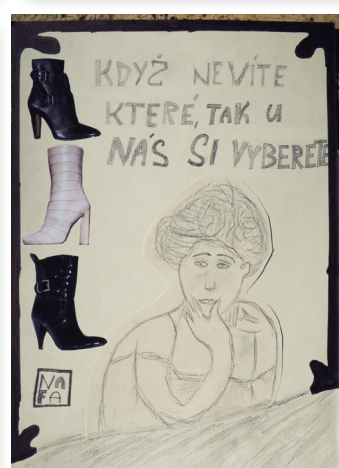 KDYŽ NEVÍTE
KTERÉ, TAK U
NÁS SI VYBERETE
NaFA